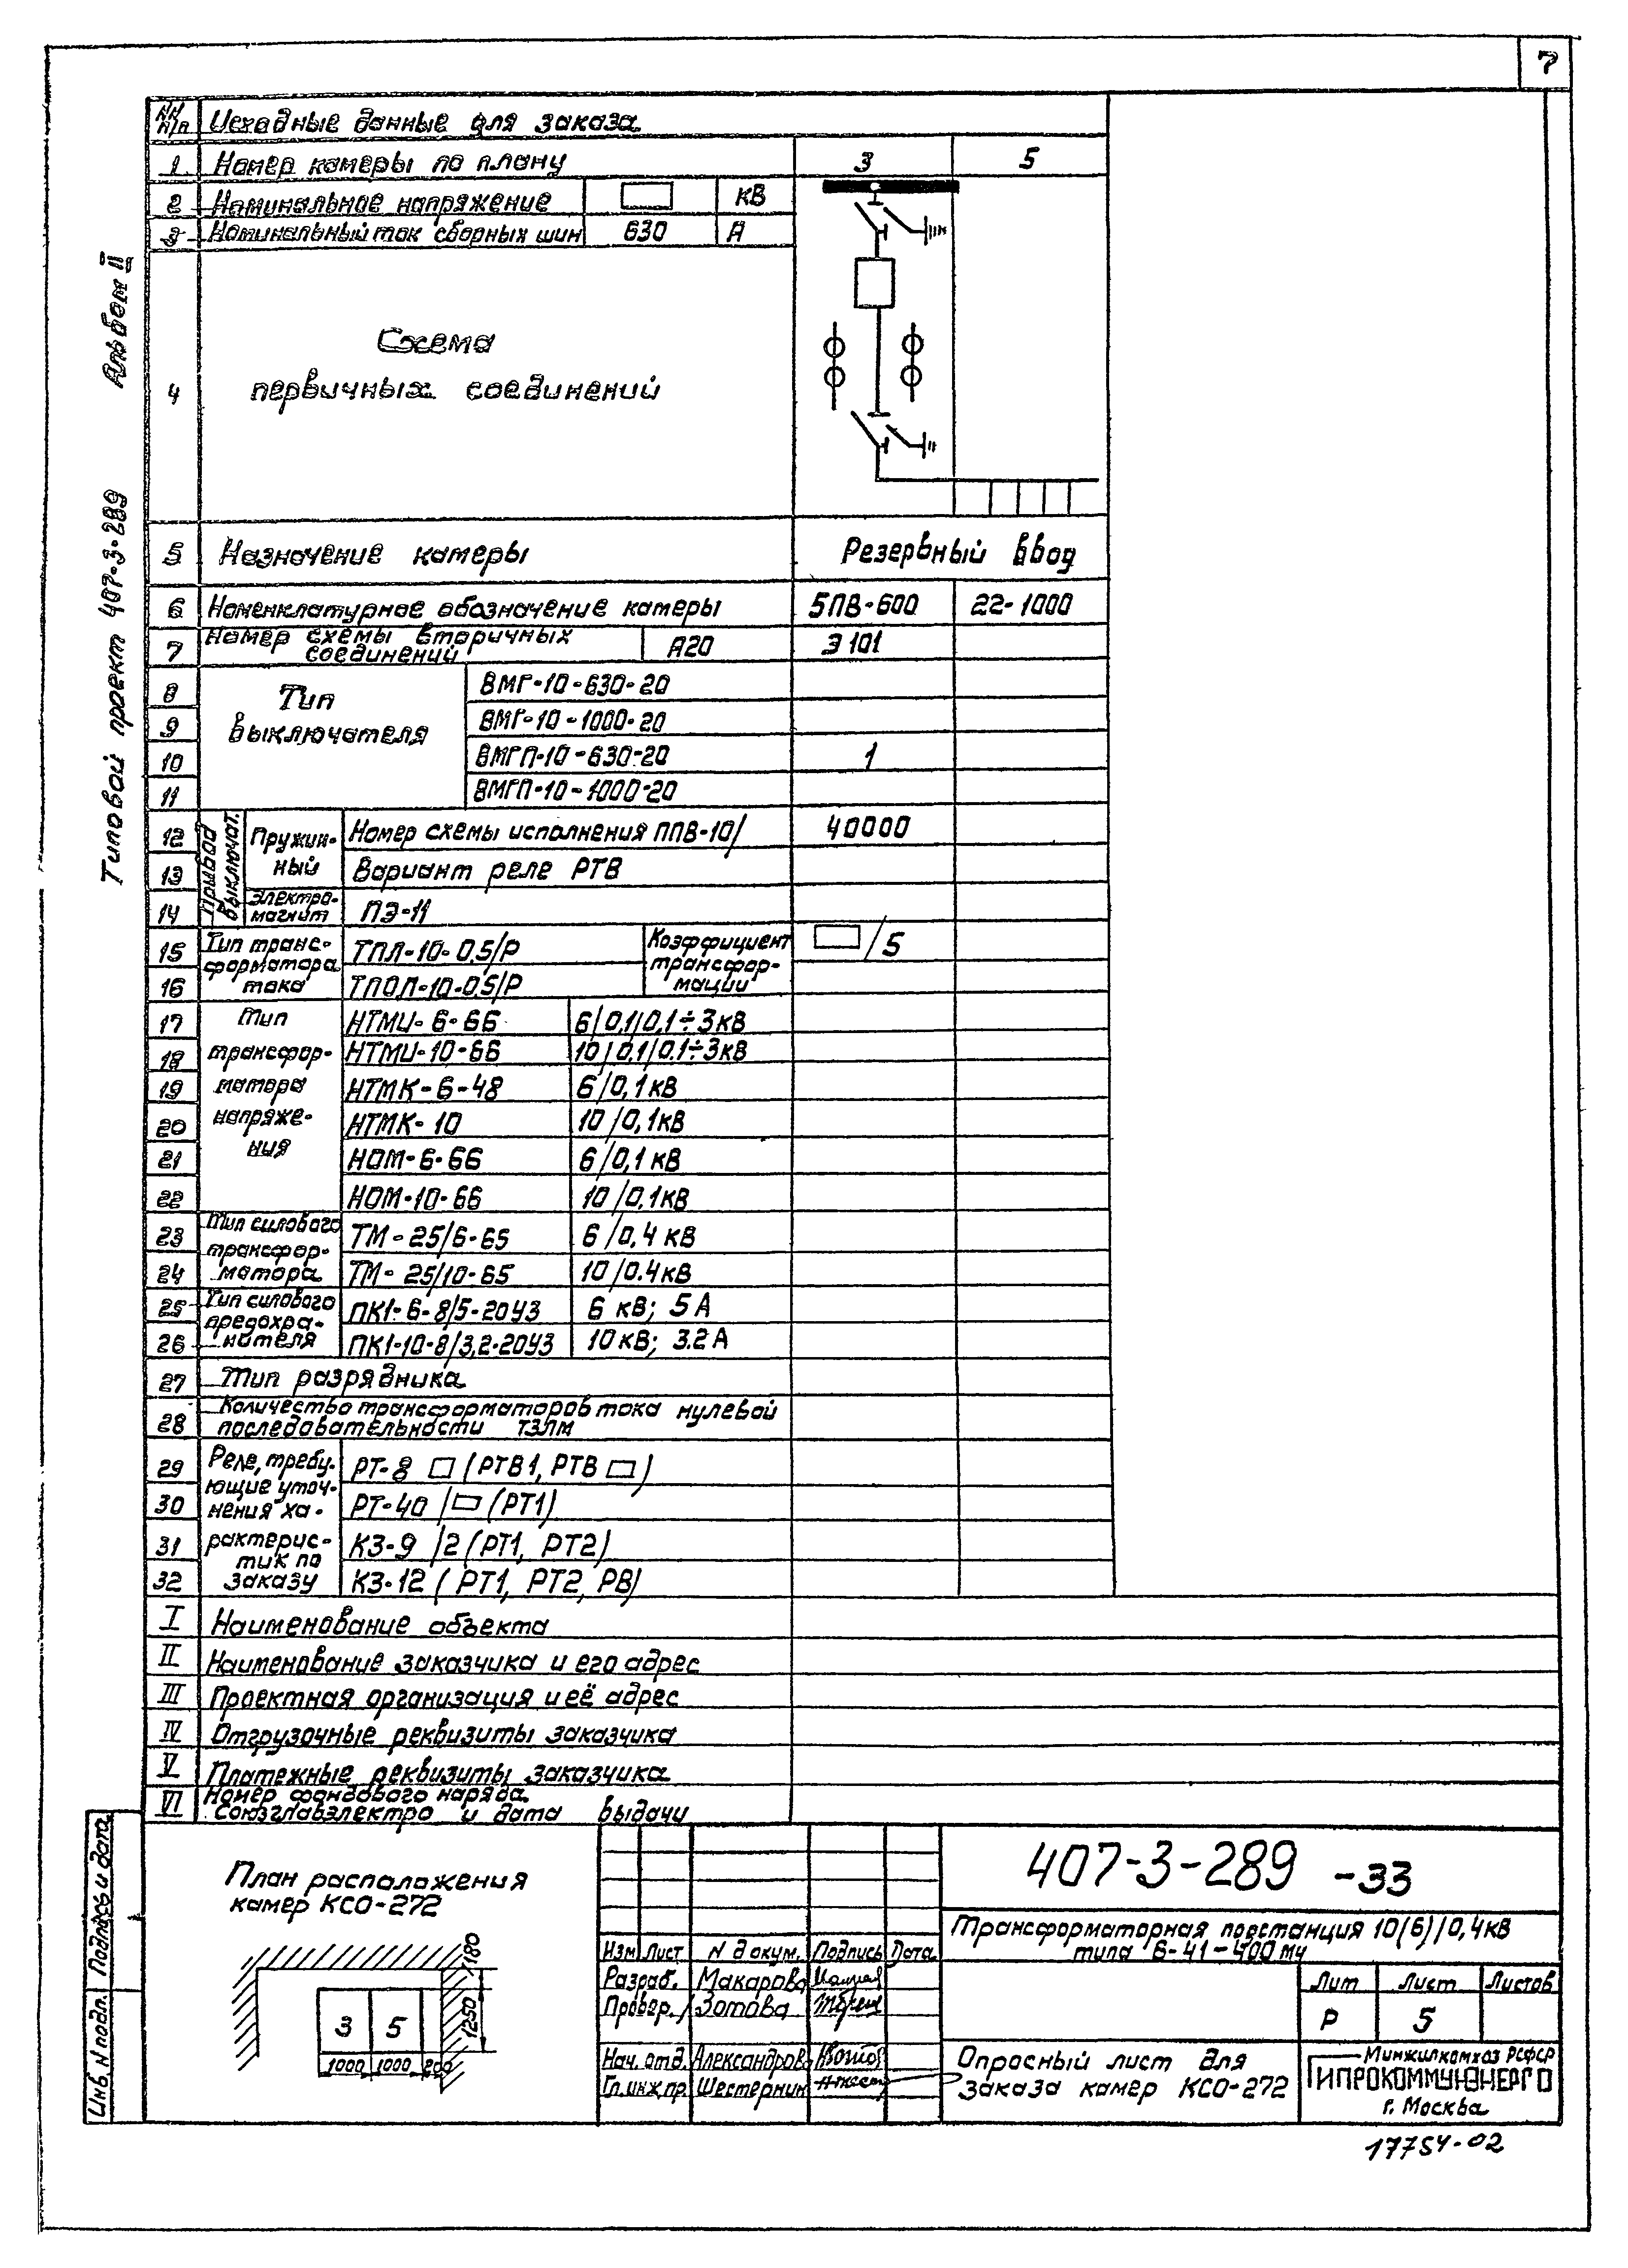 7
Альбом II
Типовой проект 407-3-289
NN п/п Исходные данные для заказа
1 Номер камеры по плану 3 5
2 Номинальное напряжение кВ
3 Номинальный ток сборных шин 630 А
4 Схема
первичных соединений
5 Назначение камеры Резервный ввод
6 Номенклатурное обозначение камеры 5ПВ-600 22-1000
7 Номер схемы вторичных
соединений А20 Э101
Тип
выключателя
8 ВМГ-10-630-20
9 ВМГ-10-1000-20
10 ВМГП-10-630-20 1
11 ВМГП-10-1000-20
Привод
выключат.
Пружин-
ный
12 Номер схемы исполнения ППВ-10/ 40000
13 Вариант реле РТВ
Электро-
магнит
14 ПЭ-11
Тип транс-
форматора
тока
15 ТПЛ-10-0,5/Р
16 ТПОЛ-10-0,5/Р
Коэффициент
трансфор-
мации
/5
Тип
трансфор-
матора
напряже-
ния
17 НТМИ-6-66 6/0,1/0,1÷3кВ
18 НТМИ-10-66 10/0,1/0,1÷3кВ
19 НТМК-6-48 6/0,1кВ
20 НТМК-10 10/0,1кВ
21 НОМ-6-66 6/0,1кВ
22 НОМ-10-66 10/0,1кВ
Тип силового
трансфор-
матора
23 ТМ-25/6-65 6/0,4 кВ
24 ТМ-25/10-65 10/0.4кВ
Тип силового
предохра-
нителя
25 ПК1-6-8/5-20У3 6 кВ; 5А
26 ПК1-10-8/3,2-20У3 10кВ; 3.2А
27 Тип разрядника
28 Количество трансформаторов тока нулевой
последовательности ТЗЛМ
Реле, требу-
ющие уточ-
нения ха-
рактерис-
тик по
заказу
29 РТ-8 (РТВ1, РТВ )
30 РТ-40 / (РТ1)
31 КЗ-9 /2 (РТ1, РТ2)
32 КЗ-12 (РТ1, РТ2, РВ)
I Наименование объекта
II Наименование заказчика и его адрес
III Проектная организация и её адрес
IV Отгрузочные реквизиты заказчика
V Платежные реквизиты заказчика
VI Номер фондового наряда
Союзглавэлектро и дата выдачи
Инв. N подл. Подпись и дата
План расположения
камер КСО-272
180
1250
3 5
1000 1000 200
Изм Лист N докум. Подпись Дата
Разраб. Макарова
Провер. Зотова
Нач. отд. Александрова
Гл. инж. пр. Шестернин
407-3-289 -33
Трансформаторная подстанция 10(6)/0,4кВ
типа Б-41-400 му
Лит Лист Листов
Р 5
Опросный лист для
заказа камер КСО-272
Минжилкомхоз РСФСР
ГИПРОКОММУНЭНЕРГО
г. Москва
17754-02